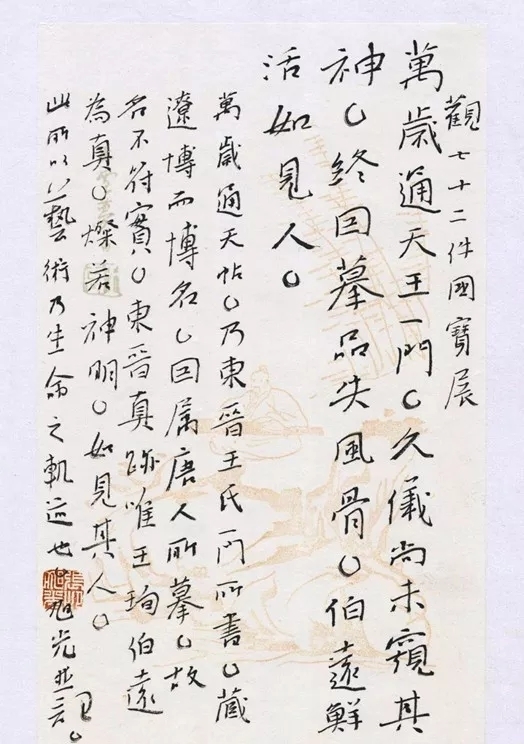 觀七十二件國寶展
萬歲通天王一門。久儀尚未窺其
神。終囙摹品失風骨。伯遠鮮
活如見人。
萬歲通天帖。乃東晉王氏一門所書。藏
遼博而博名。囙属唐人所摹。故
名不符實。東晉真跡唯王珣伯遠
為真。燦若神明。如見其人。
此所以藝術乃生命之軌迹也。旭光並言。